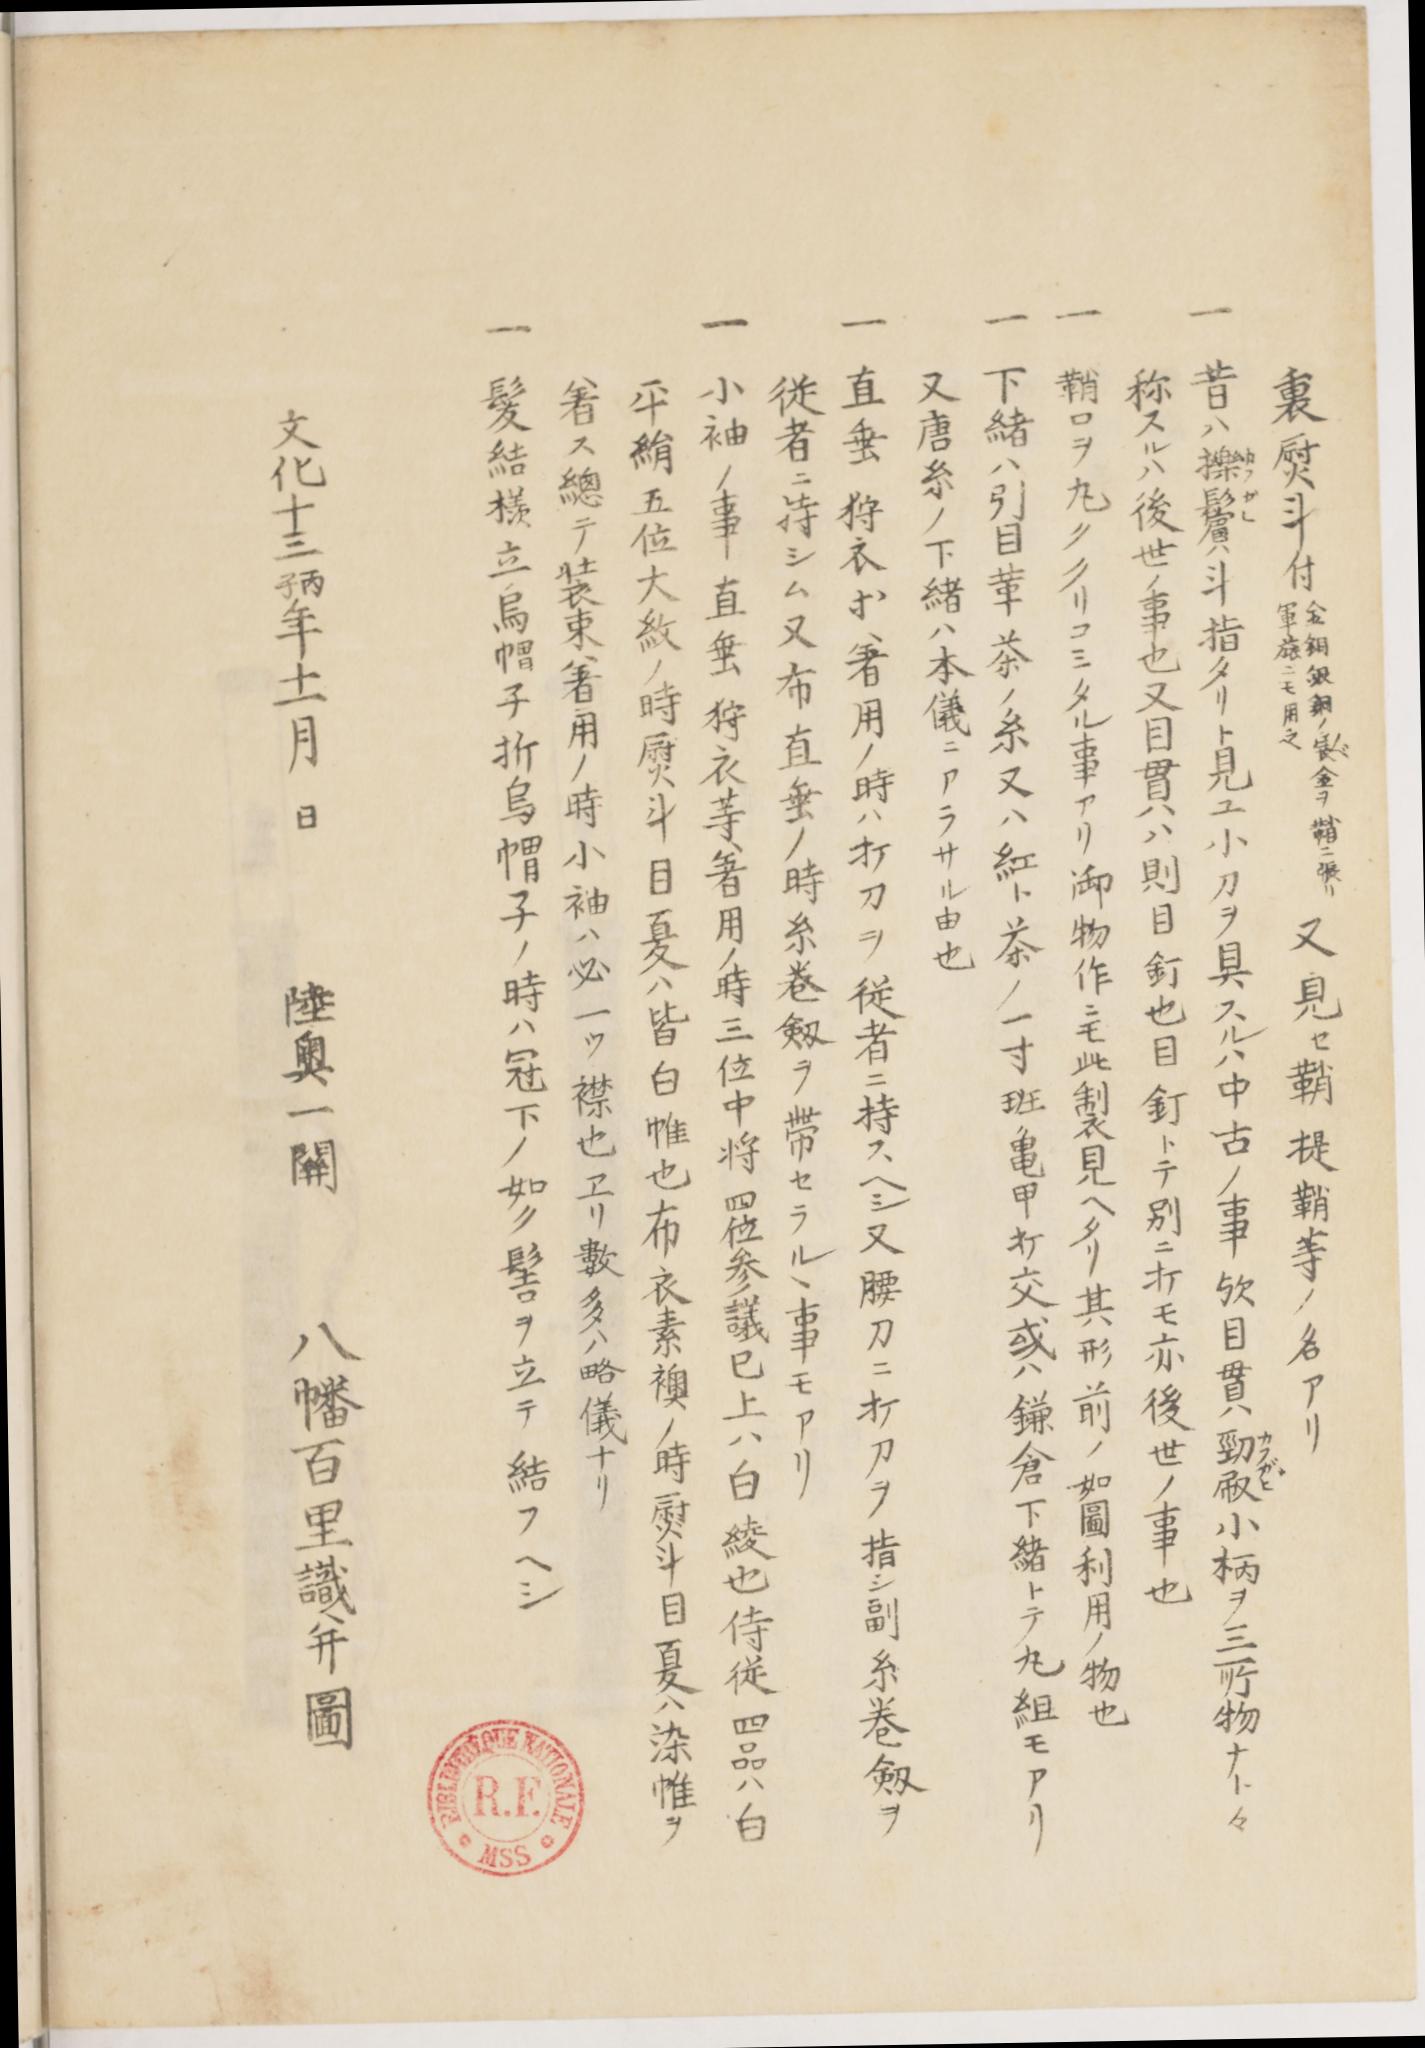 裏熨斗付 金銅銀銅ノ裏金ヲ鞘ニ張リ軍旅ニモ用之 又見セ鞘提鞘等ノ名アリ
一 昔ハ擽鬢ハ斗指タリト見ユ小刀ヲ具スルハ中古ノ事歟目貫ハ勁取小柄ヲ三所物ナト々
称スルハ後世ノ事也又目貫ハハ則目釘也目釘トテ別ニ打モ亦後世ノ事也
一 鞘口ヲ丸クノリコミタル事アリ御物作ニモ此製見ヘタリ其形前ノ如圖利用ノ物也
一 下緒ハ引目革茶ノ糸又ハ紅ト茶ノ一寸班亀甲打交或ハ鎌倉下緒トテ丸組モアリ
又唐糸ノ下緒ハ本儀ニアラサル由也
一 直垂狩衣ホ著用ノ時ハ打刀ヲ従者ニ持スヘシ又腰刀ニ打刀ヲ指シ副糸巻劔ヲ
従者ニ持シム又布直垂ノ時糸巻劔ヲ帯セラルヽ事モアリ
一 小袖ノ事直垂狩衣等著用ノ時三位中将四位参議已上ハ白綾也侍従四品ハ白
平絹五位大紋ノ時熨斗目夏ハ皆白帷也布衣素襖ノ時熨斗目夏ハ染帷ヲ
著ス總テ装束著用ノ時小袖ハ必一ツ襟也ヱリ數多ハ略儀ナリ
一 髪結様立烏帽子折烏帽子ノ時ハ冠下ノ如ク髻ヲ立テ結フヘシ
文化十三丙子年十一月 日 陸奥一關 八幡百里識并圖
BIBLIOTHÈQUE NATIONALE R.F. MSS